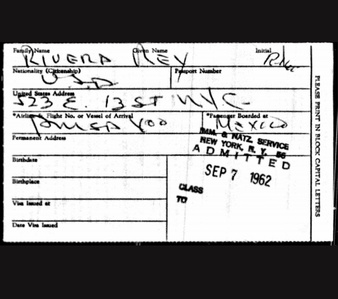 Family Name Given Name Initial
RIVERA REY
Nationality (Citizenship) Passport Number
United States Address
523 E. 13 ST NYC
*Airline & Flight No. or Vessel of Arrival *Passenger Boarded at
MEXICO
Permanent Address
IMM. & NATZ. SERVICE
NEW YORK, N. Y. 55
ADMITTED
Birthdate
SEP 7 1962
Birthplace
CLASS
TO
Visa Issued at
Date Visa Issued
PLEASE PRINT IN BLOCK CAPITAL LETTERS